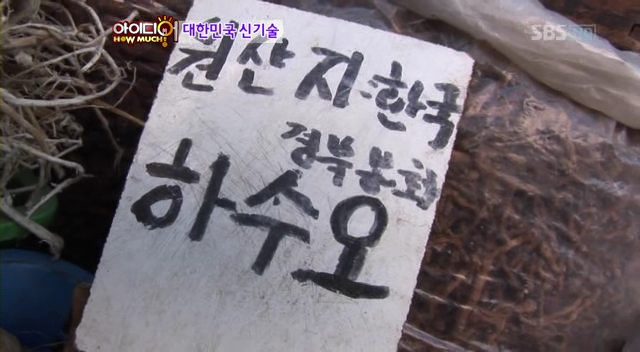 아이디어 HOW MUCH? 대한민국 신기술
SBS HD
원산지:한국
경북봉화
하수오